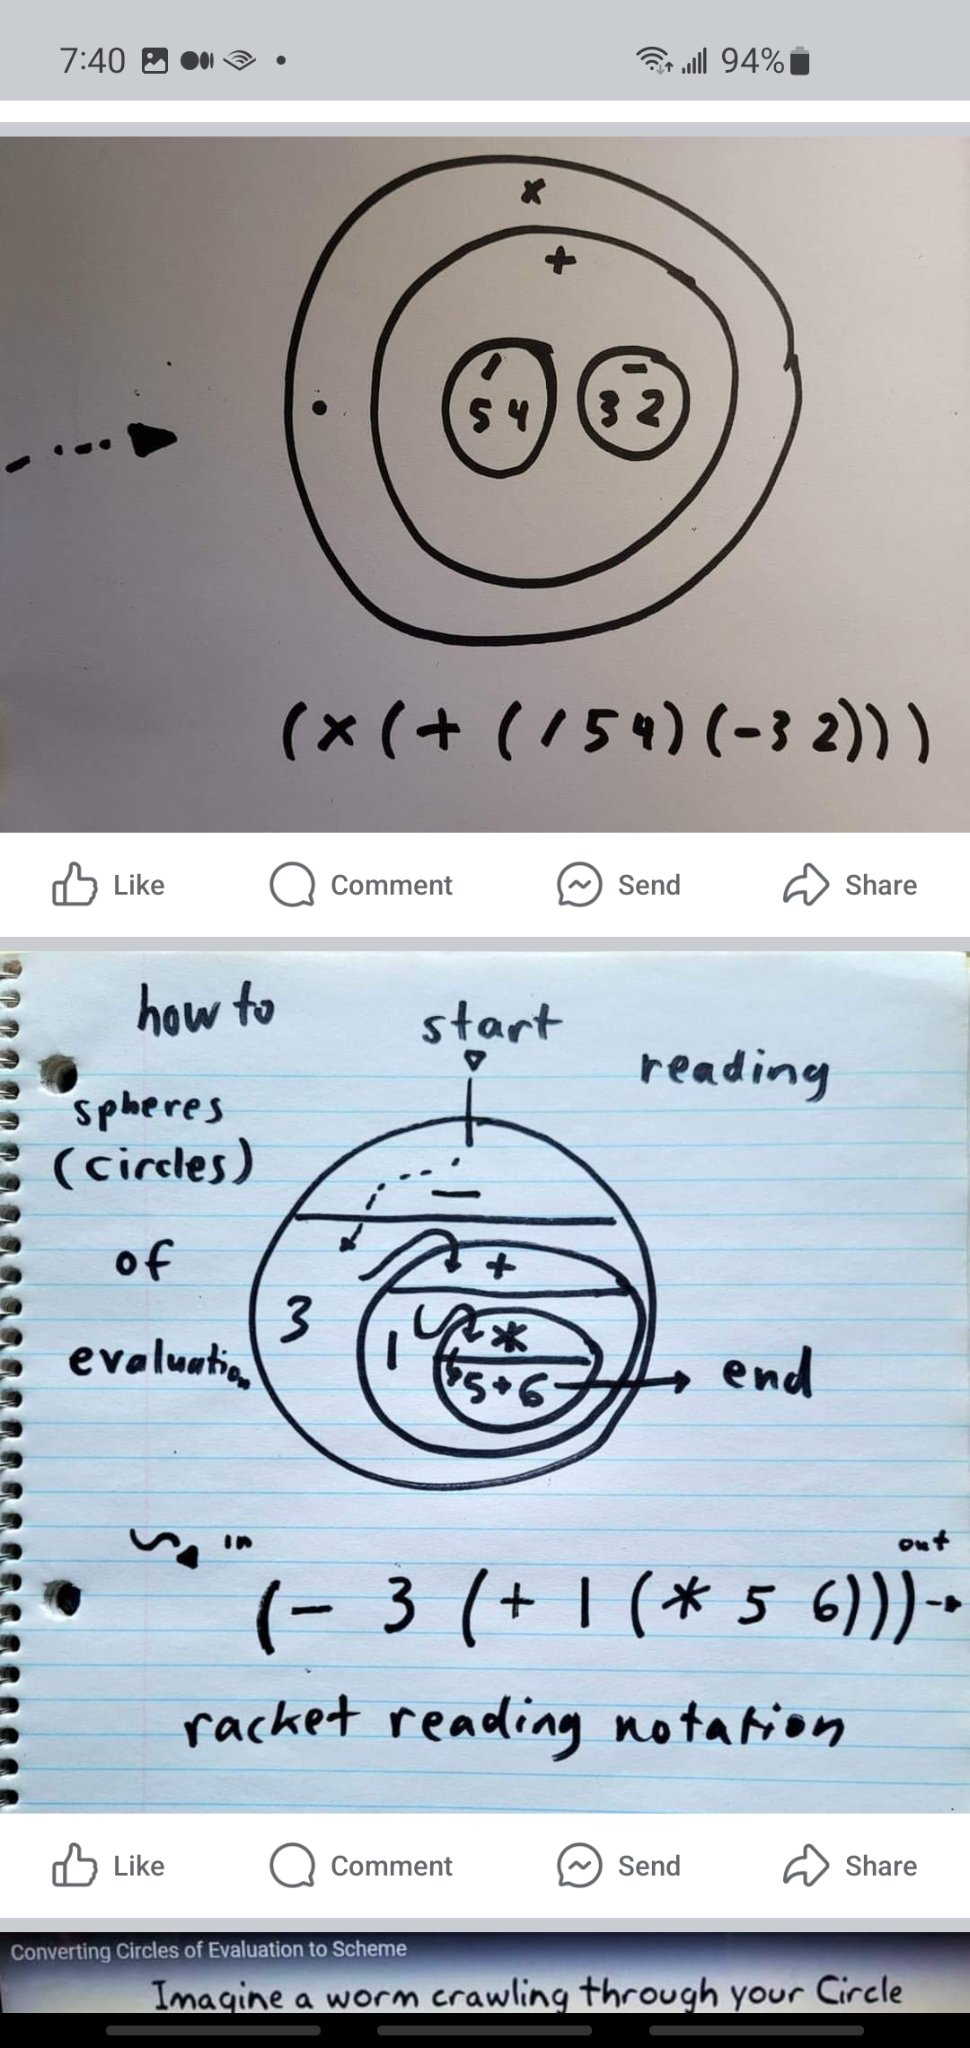 7:40 94%
x
+
/ -
5 4 3 2
(x(+(/54)(-32)))
Like Comment Send Share
how to
start
reading
spheres
(circles)
of
evaluation
-
+
3
*
1
5 6
end
in
out
(- 3 (+ 1 (* 5 6)))
racket reading notation
Like Comment Send Share
Converting Circles of Evaluation to Scheme
Imagine a worm crawling through your Circle